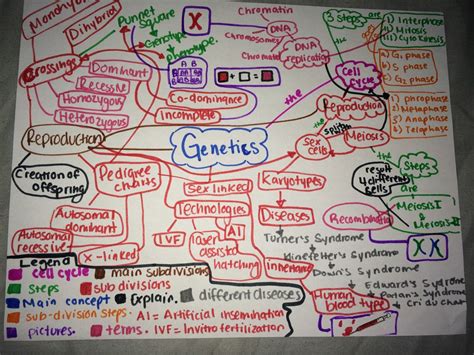 Monohybrid
Dihybrid
Crossings
Punnet
Square
Genotype
Phenotype
X
A B
Chromatin
Chromosomes
Chromatid
DNA
DNA
replication
3 steps are
i) Interphase
ii) Mitosis
iii) Cytokinesis
a) G1 phase
b) S phase
c) G2 phase
1) prophase
2) Metaphase
3) Anaphase
4) Telophase
the
Cell
Cycle
Dominant
Recessive
Homozygous
Heterozygous
Co-dominance
Incomplete
the
Reproduction
the
splits
Sex
cells
Meiosis
Reproduction
Genetics
Creation of
offspring
Pedigree
charts
Sex linked
Karyotypes
result
4 different
cells
Steps
are
Meiosis I &
Meiosis II
Recombination
X X
Technologies
Autosomal
dominant
Autosomal
recessive
x-linked
IVF
laser
assisted
hatching
AI
Diseases
Turner's Syndrome
Down's Syndrome
Edward's Syndrome
Cri du chat
Human
blood type
Legend
cell cycle
main subdivisions
Steps
sub divisions
Main concept
Explain.
different diseases
sub-division Steps.
AI = Artificial insemination
pictures.
terms.
IVF = Invitro fertilization